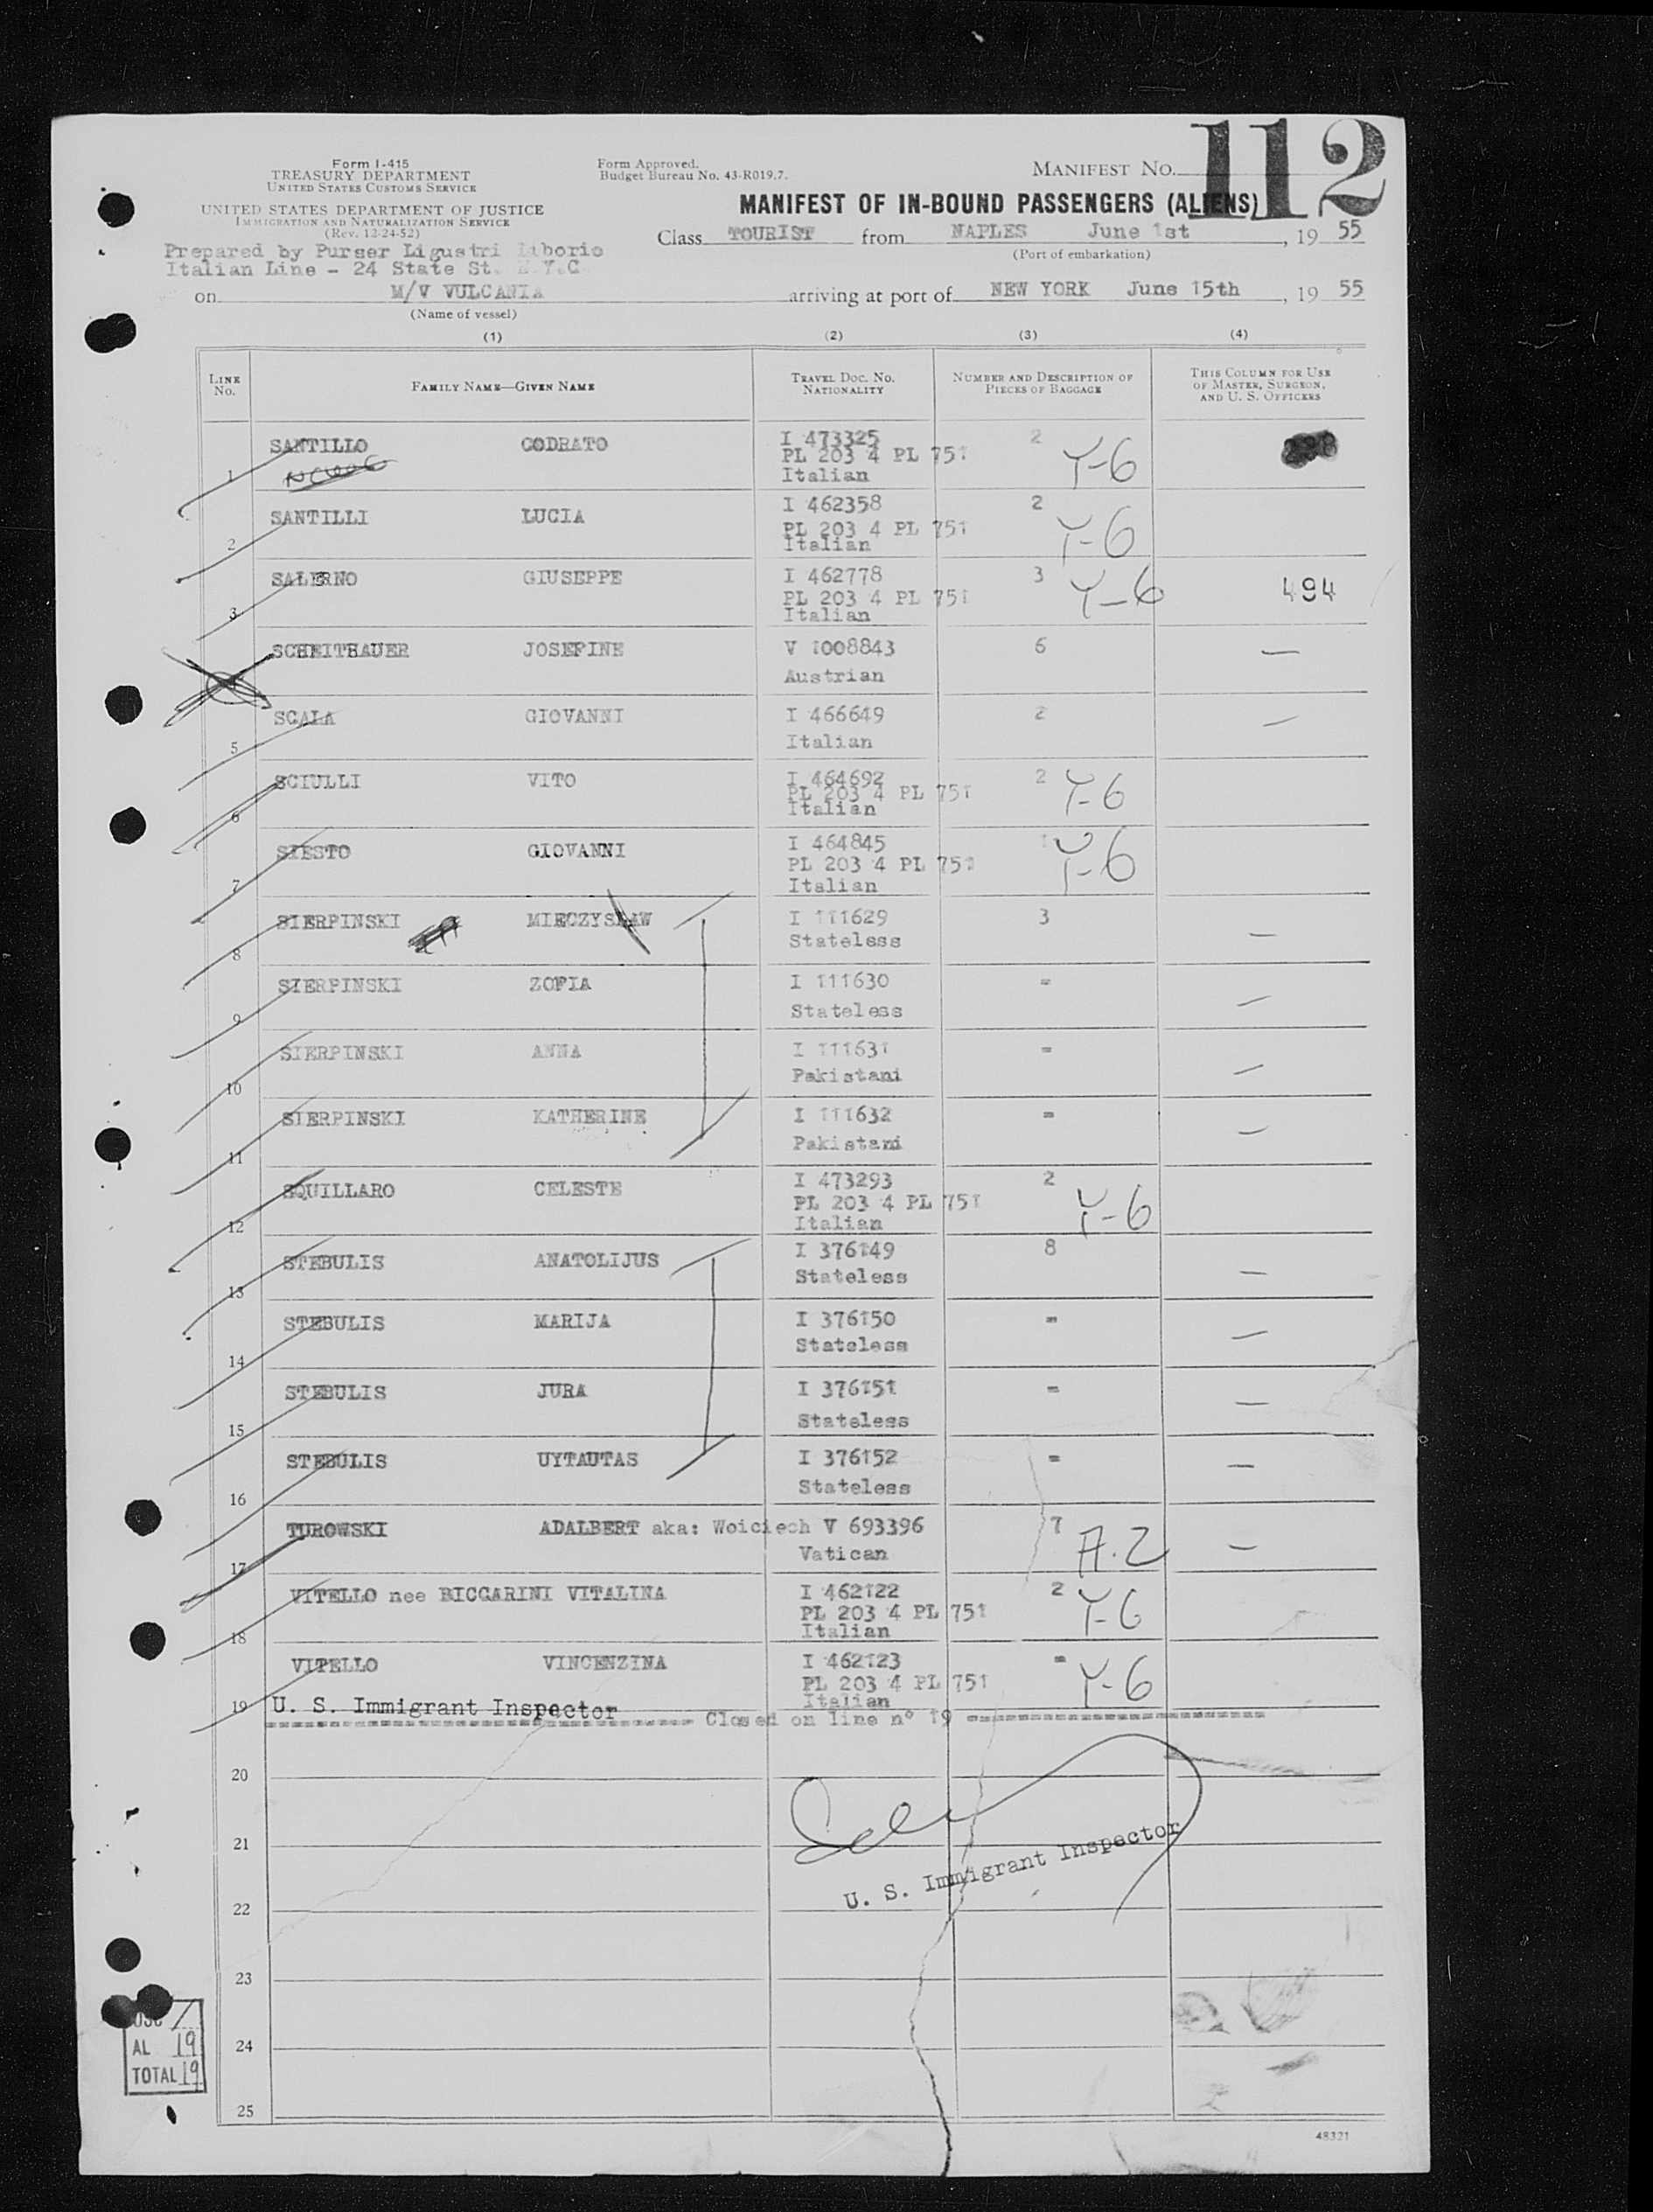 112
Form I-415
TREASURY DEPARTMENT
UNITED STATES CUSTOMS SERVICE
Form Approved.
Budget Bureau No. 43-R019.7.
MANIFEST NO.
UNITED STATES DEPARTMENT OF JUSTICE
IMMIGRATION AND NATURALIZATION SERVICE
(Rev. 12-24-52)
MANIFEST OF IN-BOUND PASSENGERS (ALIENS)
Class TOURIST from NAPLES June 1st, 19 55
(Port of embarkation)
Prepared by Purser Ligustri Liborio
Italian Line - 24 State St. N.Y.C
on M/V VULCANIA arriving at port of NEW YORK June 15th, 19 55
(Name of vessel)
(1) (2) (3) (4)
LINE No. FAMILY NAME—GIVEN NAME TRAVEL DOC. NO. NATIONALITY NUMBER AND DESCRIPTION OF PIECES OF BAGGAGE THIS COLUMN FOR USE OF MASTER, SURGEON, AND U. S. OFFICERS
1 SANTILLO CODRATO I 473325 2
PL 203 4 PL 751 Y-6
Italian
2 SANTILLI LUCIA I 462358 2
PL 203 4 PL 751 Y-6
Italian
3 SALERNO GIUSEPPE I 462778 3
PL 203 4 PL 751 Y-6 494
Italian
SCHEITHAUER JOSEFINE V 1008843 6 —
Austrian
5 SCALA GIOVANNI I 466649 2 —
Italian
6 SCIULLI VITO I 464692 2
PL 203 4 PL 751 Y-6
Italian
7 SIESTO GIOVANNI I 464845 1
PL 203 4 PL 751 Y-6
Italian
8 SIERPINSKI MIECZYSLAW I 111629 3 —
Stateless
9 SIERPINSKI ZOFIA I 111630 = —
Stateless
10 SIERPINSKI ANNA I 111631 = —
Pakistani
11 SIERPINSKI KATHERINE I 111632 = —
Pakistani
12 SQUILLARO CELESTE I 473293 2
PL 203 4 PL 751 Y-6
Italian
13 STEBULIS ANATOLIJUS I 376149 8 —
Stateless
14 STEBULIS MARIJA I 376150 = —
Stateless
15 STEBULIS JURA I 376151 = —
Stateless
16 STEBULIS UYTAUTAS I 376152 = —
Stateless
17 TUROWSKI ADALBERT aka: Woiciech V 693396 7 A.2 —
Vatican
18 VITELLO nee BICCARINI VITALINA I 462122 2
PL 203 4 PL 751 Y-6
Italian
19 VITELLO VINCENZINA I 462123 =
PL 203 4 PL 751 Y-6
Italian
U. S. Immigrant Inspector
Closed on line n° 19
20
21
U. S. Immigrant Inspector
22
23
24
25
AL 19
TOTAL 19
48321